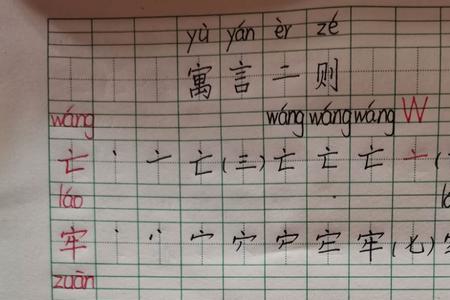 yù yán èr zé
寓言二则
wáng wáng wáng wáng W
亡 丶 亠 亡 (三) 亡 亡 亡 亠
láo
牢 丶 丷 宀 宀 牢 (七)
zuān